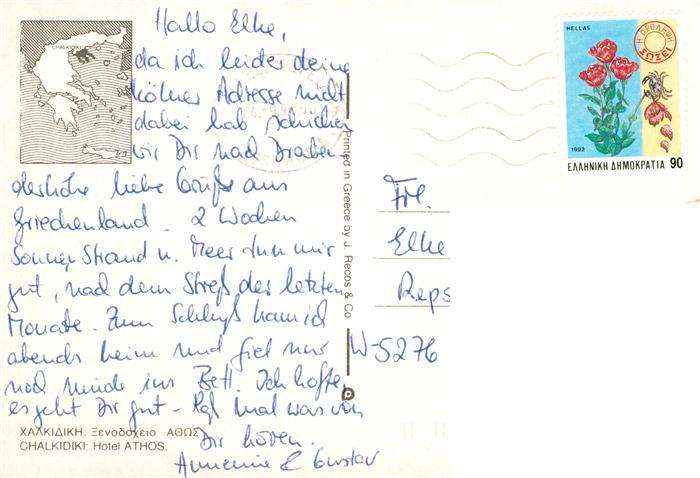 Hallo Elke,
da ich leider deine
Kölner Adresse nicht
dabei hab schicken
wir Dir nach Braben
derhöhe liebe Grüße aus
Griechenland. 2 Wochen
Sonne Strand u. Meer tun mir
gut, nach dem Streß der letzten
Monate. Zum Schluß kam ich
abends heim und fiel nur
noch müde ins Bett. Ich hoffe,
es geht Dir gut - laß mal was von
Dir hören.
Annemie & Gustav
CHALKIDIKI
ΧΑΛΚΙΔΙΚΗ: Ξενοδοχείο ΑΘΩΣ
CHALKIDIKI: Hotel ATHOS.
Printed in Greece by J. Recos & Co
HELLAS
Η ΠΡΟΛΗΨΗ
ΣΩΖΕΙ
1992
ΕΛΛΗΝΙΚΗ ΔΗΜΟΚΡΑΤΙΑ 90
Frl.
Elke
Reps
W-5276